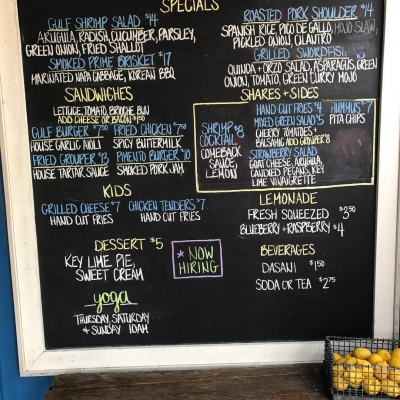 SPECIALS
GULF SHRIMP SALAD $14
ARUGULA, RADISH, CUCUMBER, PARSLEY,
GREEN ONION, FRIED SHALLOT
SMOKED PRIME BRISKET $17
MARINATED NAPA CABBAGE, KOREAN BBQ
ROASTED PORK SHOULDER $14
SPANISH RICE, PICO DE GALLO, MOJO SLAW,
PICKLED ONION, CILANTRO
GRILLED SWORDFISH
QUINOA + ORZO SALAD, ASPARAGUS, GREEN
ONION, TOMATO, GREEN CURRY MOJO
SANDWICHES
LETTUCE, TOMATO, BRIOCHE BUN
ADD CHEESE OR BACON $1.50
GULF BURGER $7.50
HOUSE GARLIC AIOLI
FRIED CHICKEN $7.50
SPICY BUTTERMILK
FRIED GROUPER $13
HOUSE TARTAR SAUCE
PIMENTO BURGER $10
SMOKED PORK JAM
SHARES + SIDES
SHRIMP $8
COCKTAIL
COMEBACK
SAUCE,
LEMON
HAND CUT FRIES $4
MIXED GREEN SALAD $5
CHERRY TOMATOES +
BALSAMIC ADD GROUPER $8
HUMMUS $7
PITA CHIPS
STRAWBERRY SALAD
GOAT CHEESE, ARUGULA,
CANDIED PECANS, KEY
LIME VINAIGRETTE
KIDS
GRILLED CHEESE $7
HAND CUT FRIES
CHICKEN TENDERS $7
HAND CUT FRIES
LEMONADE
FRESH SQUEEZED $3.50
BLUEBERRY + RASPBERRY $4
DESSERT $5
KEY LIME PIE,
SWEET CREAM
* NOW
HIRING
BEVERAGES
DASANI $1.50
SODA OR TEA $2.75
yoga
THURSDAY, SATURDAY
& SUNDAY 10AM